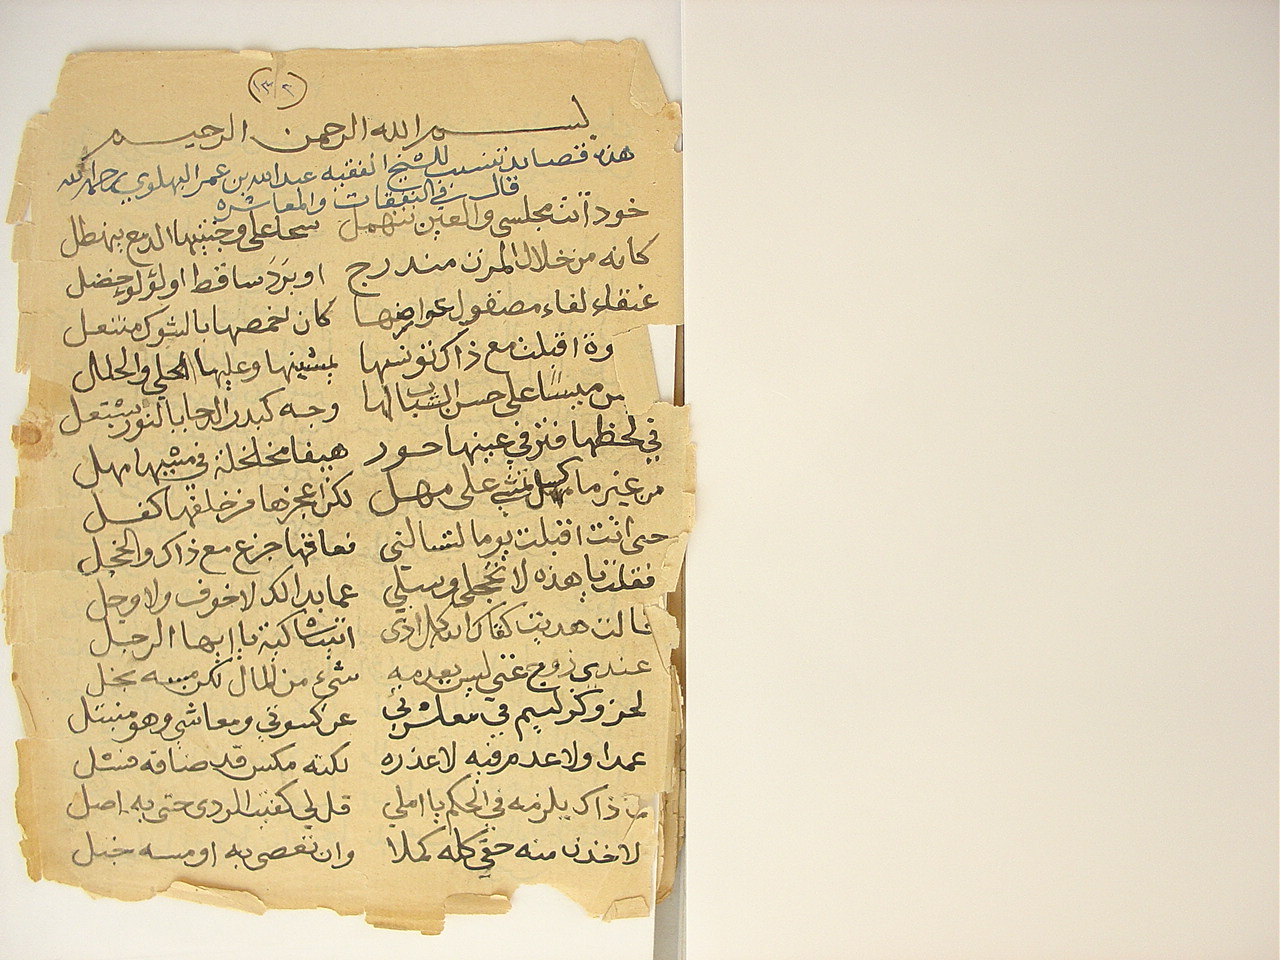 (١٣٢)
بسم الله الرحمن الرحيم
هذه قصائد تنسب للشيخ الفقيه عبد الله بن عمر البهلوي رحمه الله
قال في النفقات والمعاشره
خود أتت مجلسي والعين تنهمل سحا على وجنتيها الدمع ينهطل
كانه من خلال المزن مندرج او بَرَدَ ساقط او لؤلؤ خضل
عنقاء لفاء مصقول عوارضها كان اخمصها بالشوك منتعل
اقبلت مع ذاك تونسها بمشيتها وعليها الحلي والحلل
من على حسن الشباب لها وجه كبدر الدجا بالنور يشتعل
في لحظها فتر في عينها حور هيفا مخلخلة في مشيها مهل
من غير ما تمشي على مهل لكن اعجزها من خلفها كفل
حتى اتت اقبلت يوما لتسالني نعاقها جزع مع ذاك والخجل
فقلت يا هذه لا تخجلي وسلي عما بدا لك لا خوف ولا وجل
قالت هديت كفاك الله كل اذى اتيت شاكية يا ايها الرجل
عندي زوج غني ليس يعدمه شيء من المال لكن مسه بخل
لحز وكز لئيم في معاشرتي عن كسوتي ومعاشي وهو منبتل
عمدا ولا عدم فيه لاعذره لكنه مكس قد ضاقه فشل
من ذاك يلزمه في الحكم يا املي قل لي كفيت الردى حتى به اصل
لاخذن منه حقي كله كملا وان تعصى به او مسه خبل